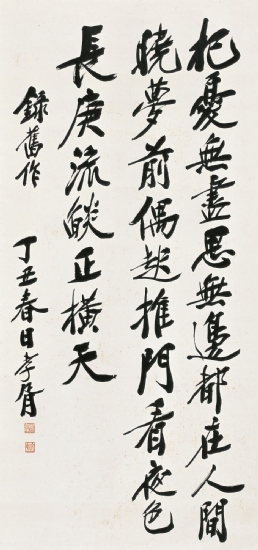 杞憂無盡思無邊都在人間
曉夢前偶趁推門看夜色
長庚流燄正橫天
錄舊作
丁丑春日孝胥